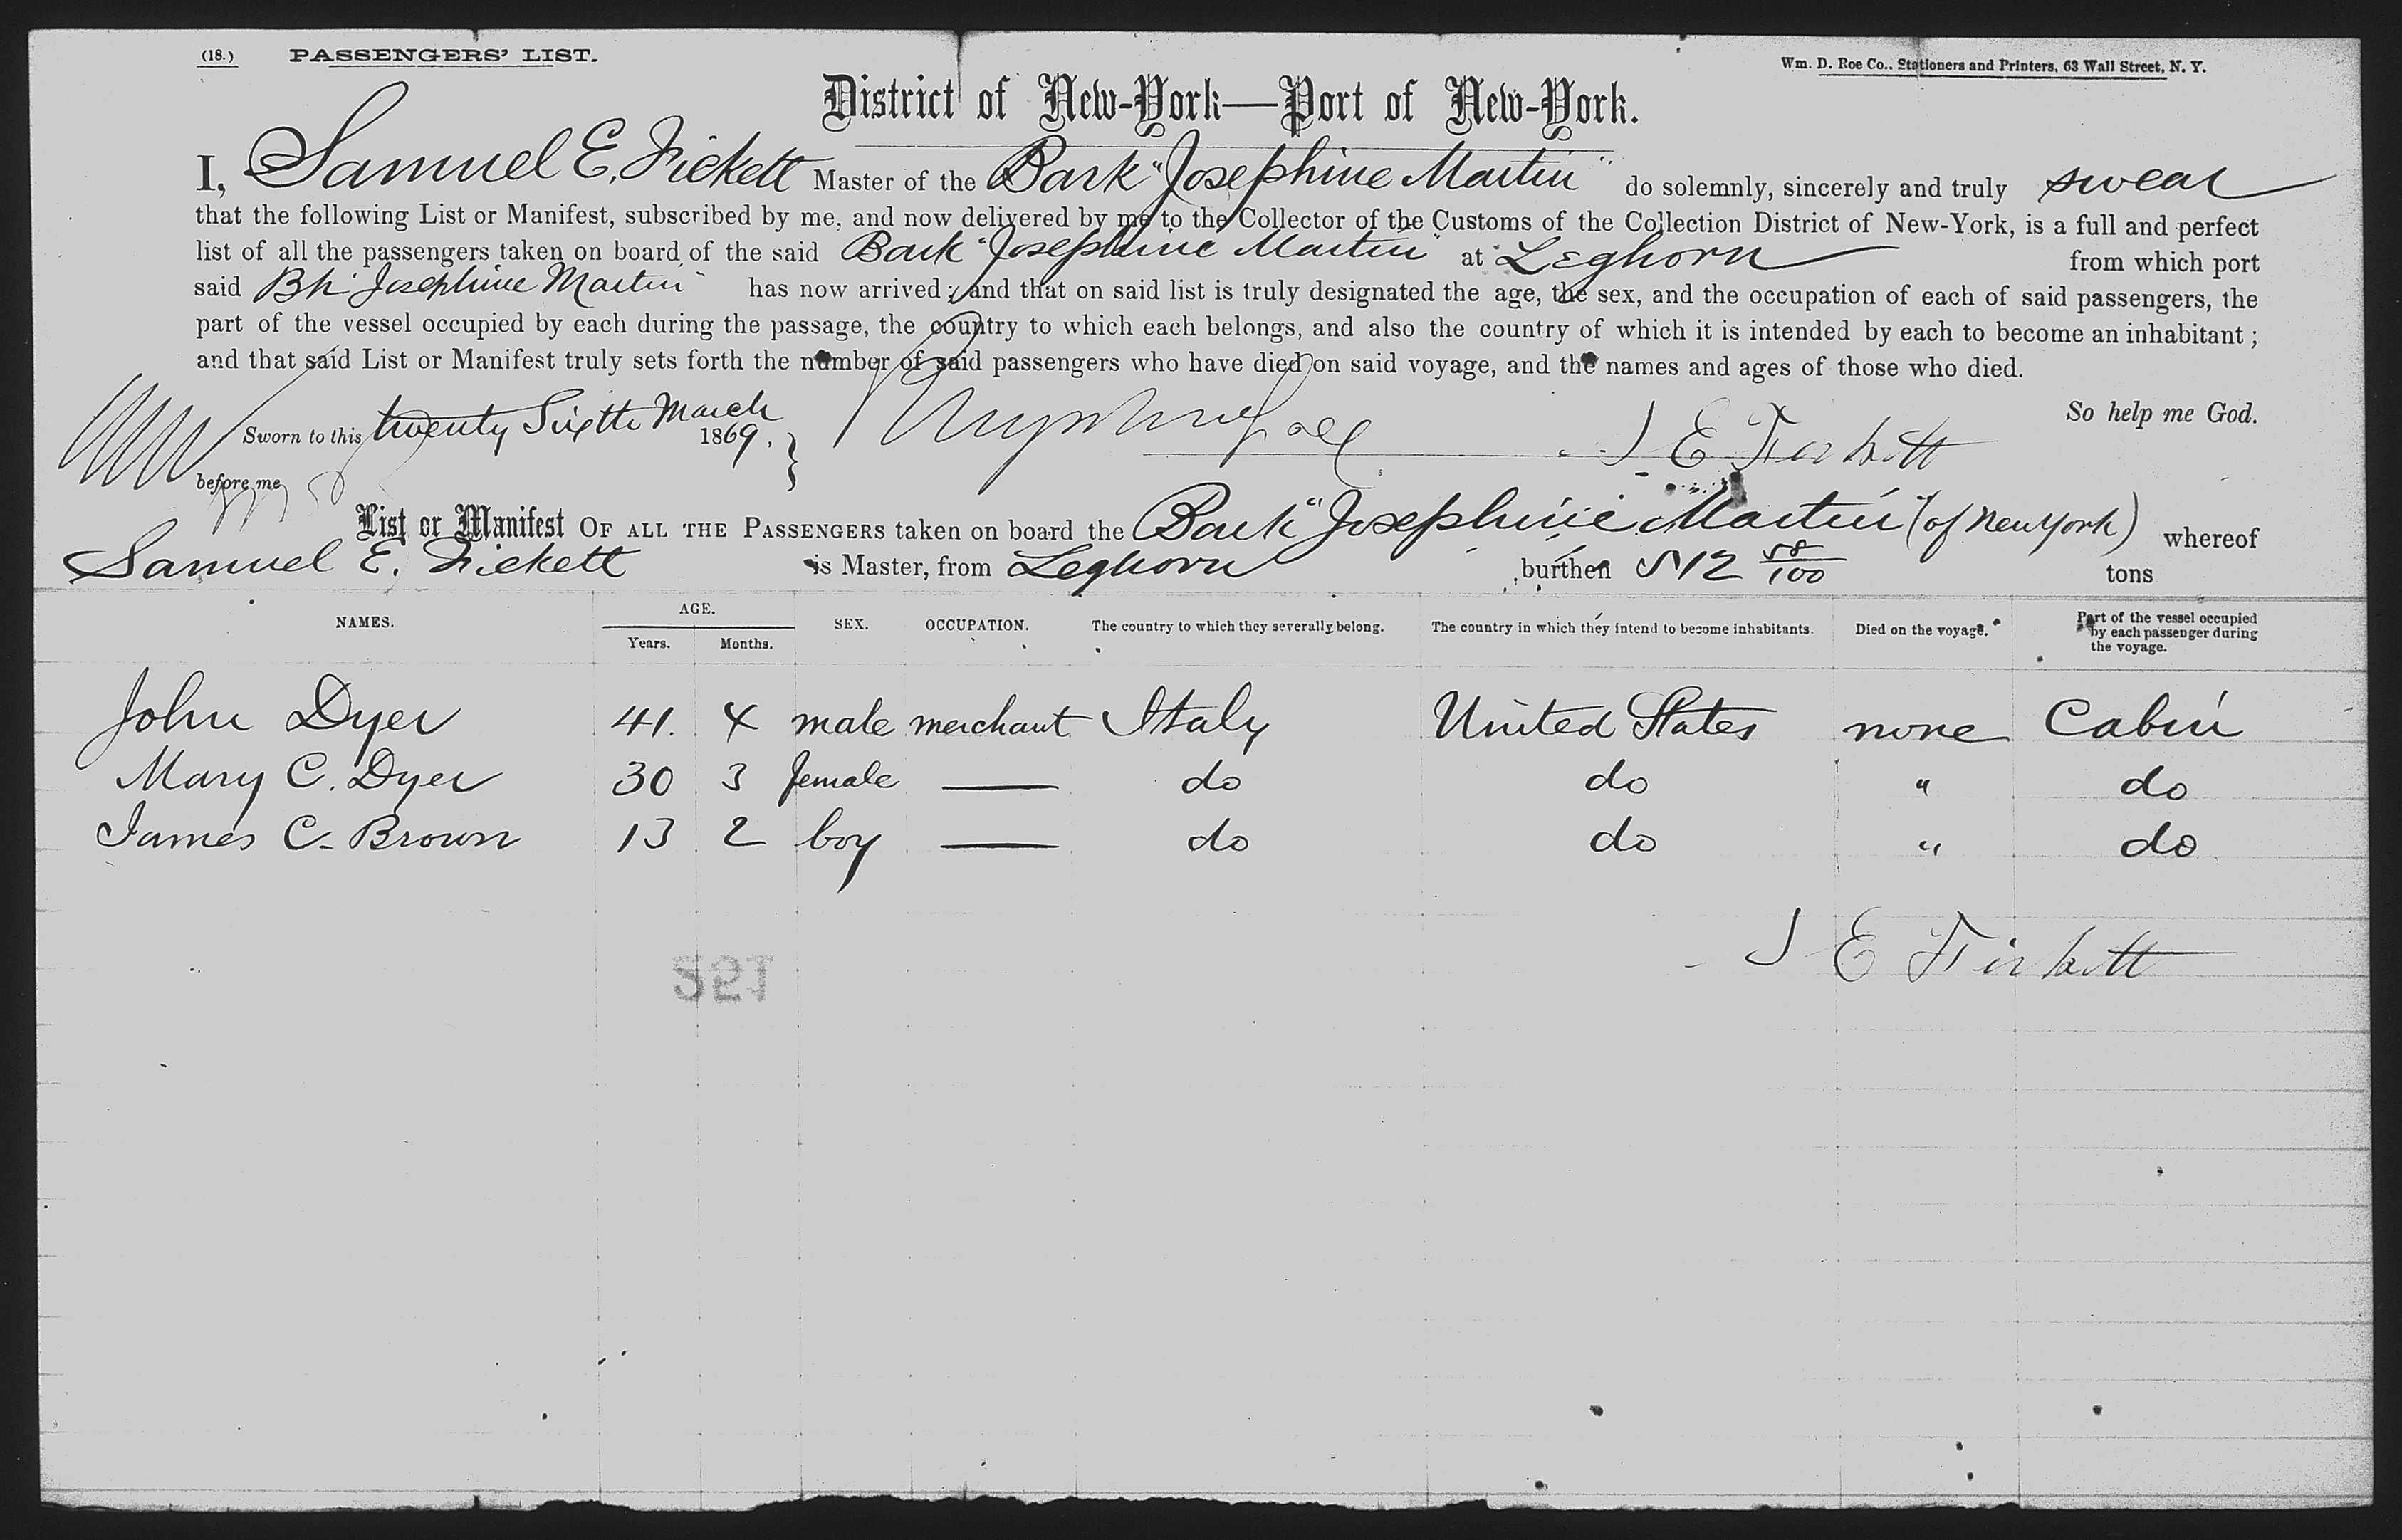 (18.) PASSENGERS' LIST. Wm. D. Roe Co., Stationers and Printers, 63 Wall Street, N. Y.
District of New-York—Port of New-York.
I, Samuel E. Fickett Master of the Bark "Josephine Martin" do solemnly, sincerely and truly swear
that the following List or Manifest, subscribed by me, and now delivered by me to the Collector of the Customs of the Collection District of New-York, is a full and perfect
list of all the passengers taken on board of the said Bark "Josephine Martin" at Leghorn from which port
said Bk "Josephine Martin" has now arrived; and that on said list is truly designated the age, the sex, and the occupation of each of said passengers, the
part of the vessel occupied by each during the passage, the country to which each belongs, and also the country of which it is intended by each to become an inhabitant;
and that said List or Manifest truly sets forth the number of said passengers who have died on said voyage, and the names and ages of those who died.
So help me God.
Sworn to this twenty Sixth March 1869. S E Fickett
before me
List or Manifest OF ALL THE PASSENGERS taken on board the Bark "Josephine Martin" (of New York) whereof
Samuel E. Fickett is Master, from Leghorn burthen 512 58/100 tons
NAMES. AGE. SEX. OCCUPATION. The country to which they severally belong. The country in which they intend to become inhabitants. Died on the voyage. Part of the vessel occupied by each passenger during the voyage.
Years. Months.
John Dyer 41. 4 male merchant Italy United States none Cabin
Mary C. Dyer 30 3 female — do do " do
James C. Brown 13 2 boy — do do " do
S E Fickett